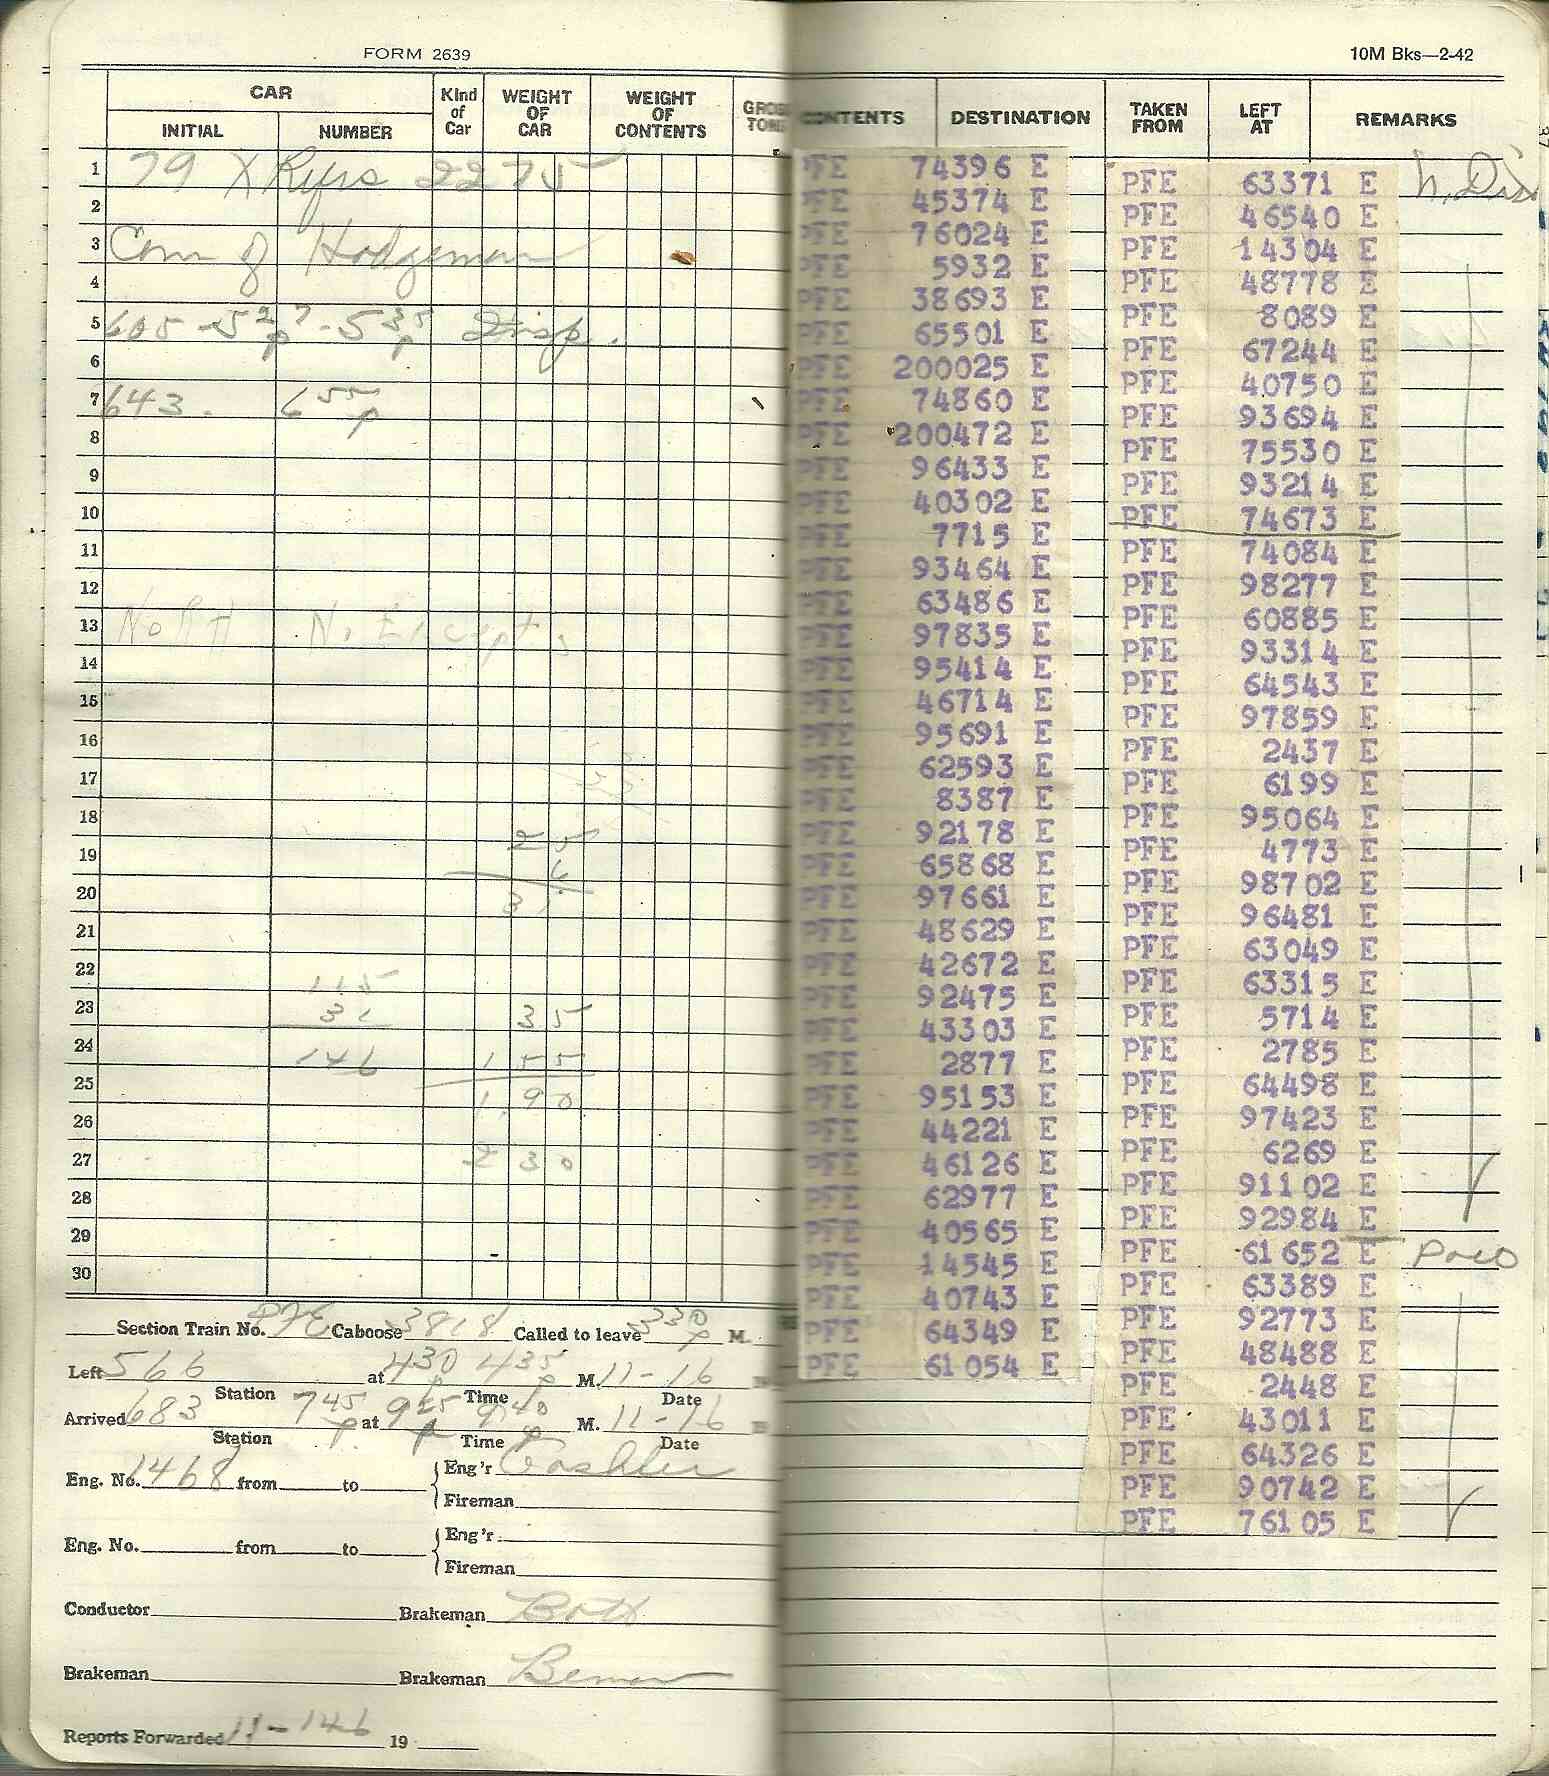 FORM 2639
10M Bks—2-42
CAR
INITIAL NUMBER
Kind of Car
WEIGHT OF CAR
WEIGHT OF CONTENTS
GROSS TONS
CONTENTS
DESTINATION
TAKEN FROM
LEFT AT
REMARKS
1 79 X Refrs 2275
2
3 Com of Hodgeman
4
5 605 - 5 2 7 p - 5 35 p Disp.
6
7 643. 6 55 p
8
9
10
11
12
13 NORTH No Except.
14
15
16
17
18
19 25
6
20 31
21
22 115
23 31 35
24 146 155
25 1.90
26
27 230
28
29
30
PFE 74396 E
PFE 45374 E
PFE 76024 E
PFE 5932 E
PFE 38693 E
PFE 65501 E
PFE 200025 E
PFE 74860 E
PFE 200472 E
PFE 96433 E
PFE 40302 E
PFE 7715 E
PFE 93464 E
PFE 63486 E
PFE 97835 E
PFE 95414 E
PFE 46714 E
PFE 95691 E
PFE 62593 E
PFE 8387 E
PFE 92178 E
PFE 65868 E
PFE 97661 E
PFE 48629 E
PFE 42672 E
PFE 92475 E
PFE 43303 E
PFE 2877 E
PFE 95153 E
PFE 44221 E
PFE 46126 E
PFE 62977 E
PFE 40565 E
PFE 14545 E
PFE 40743 E
PFE 64349 E
PFE 61054 E
PFE 63371 E
PFE 46540 E
PFE 14304 E
PFE 48778 E
PFE 8089 E
PFE 67244 E
PFE 40750 E
PFE 93694 E
PFE 75530 E
PFE 93214 E
PFE 74673 E
PFE 74084 E
PFE 98277 E
PFE 60885 E
PFE 93314 E
PFE 64543 E
PFE 97859 E
PFE 2437 E
PFE 6199 E
PFE 95064 E
PFE 4773 E
PFE 98702 E
PFE 96481 E
PFE 63049 E
PFE 63315 E
PFE 5714 E
PFE 2785 E
PFE 64498 E
PFE 97423 E
PFE 6269 E
PFE 91102 E
PFE 92984 E
PFE 61652 E Poco
PFE 63389 E
PFE 92773 E
PFE 48488 E
PFE 2448 E
PFE 43011 E
PFE 64326 E
PFE 90742 E
PFE 76105 E
Section Train No. PFE Caboose 3818 Called to leave 330 p M.
Left 566 at 430 p 435 p M. 11-16
Station Time Date
Arrived 683 745 p at 925 p 940 p M. 11-16
Station Time Date
Eng. No. 1468 from to Eng'r Cashler
Fireman
Eng. No. from to Eng'r
Fireman
Conductor Brakeman Bott
Brakeman Brakeman Bemer
Reports Forwarded 11-146 19